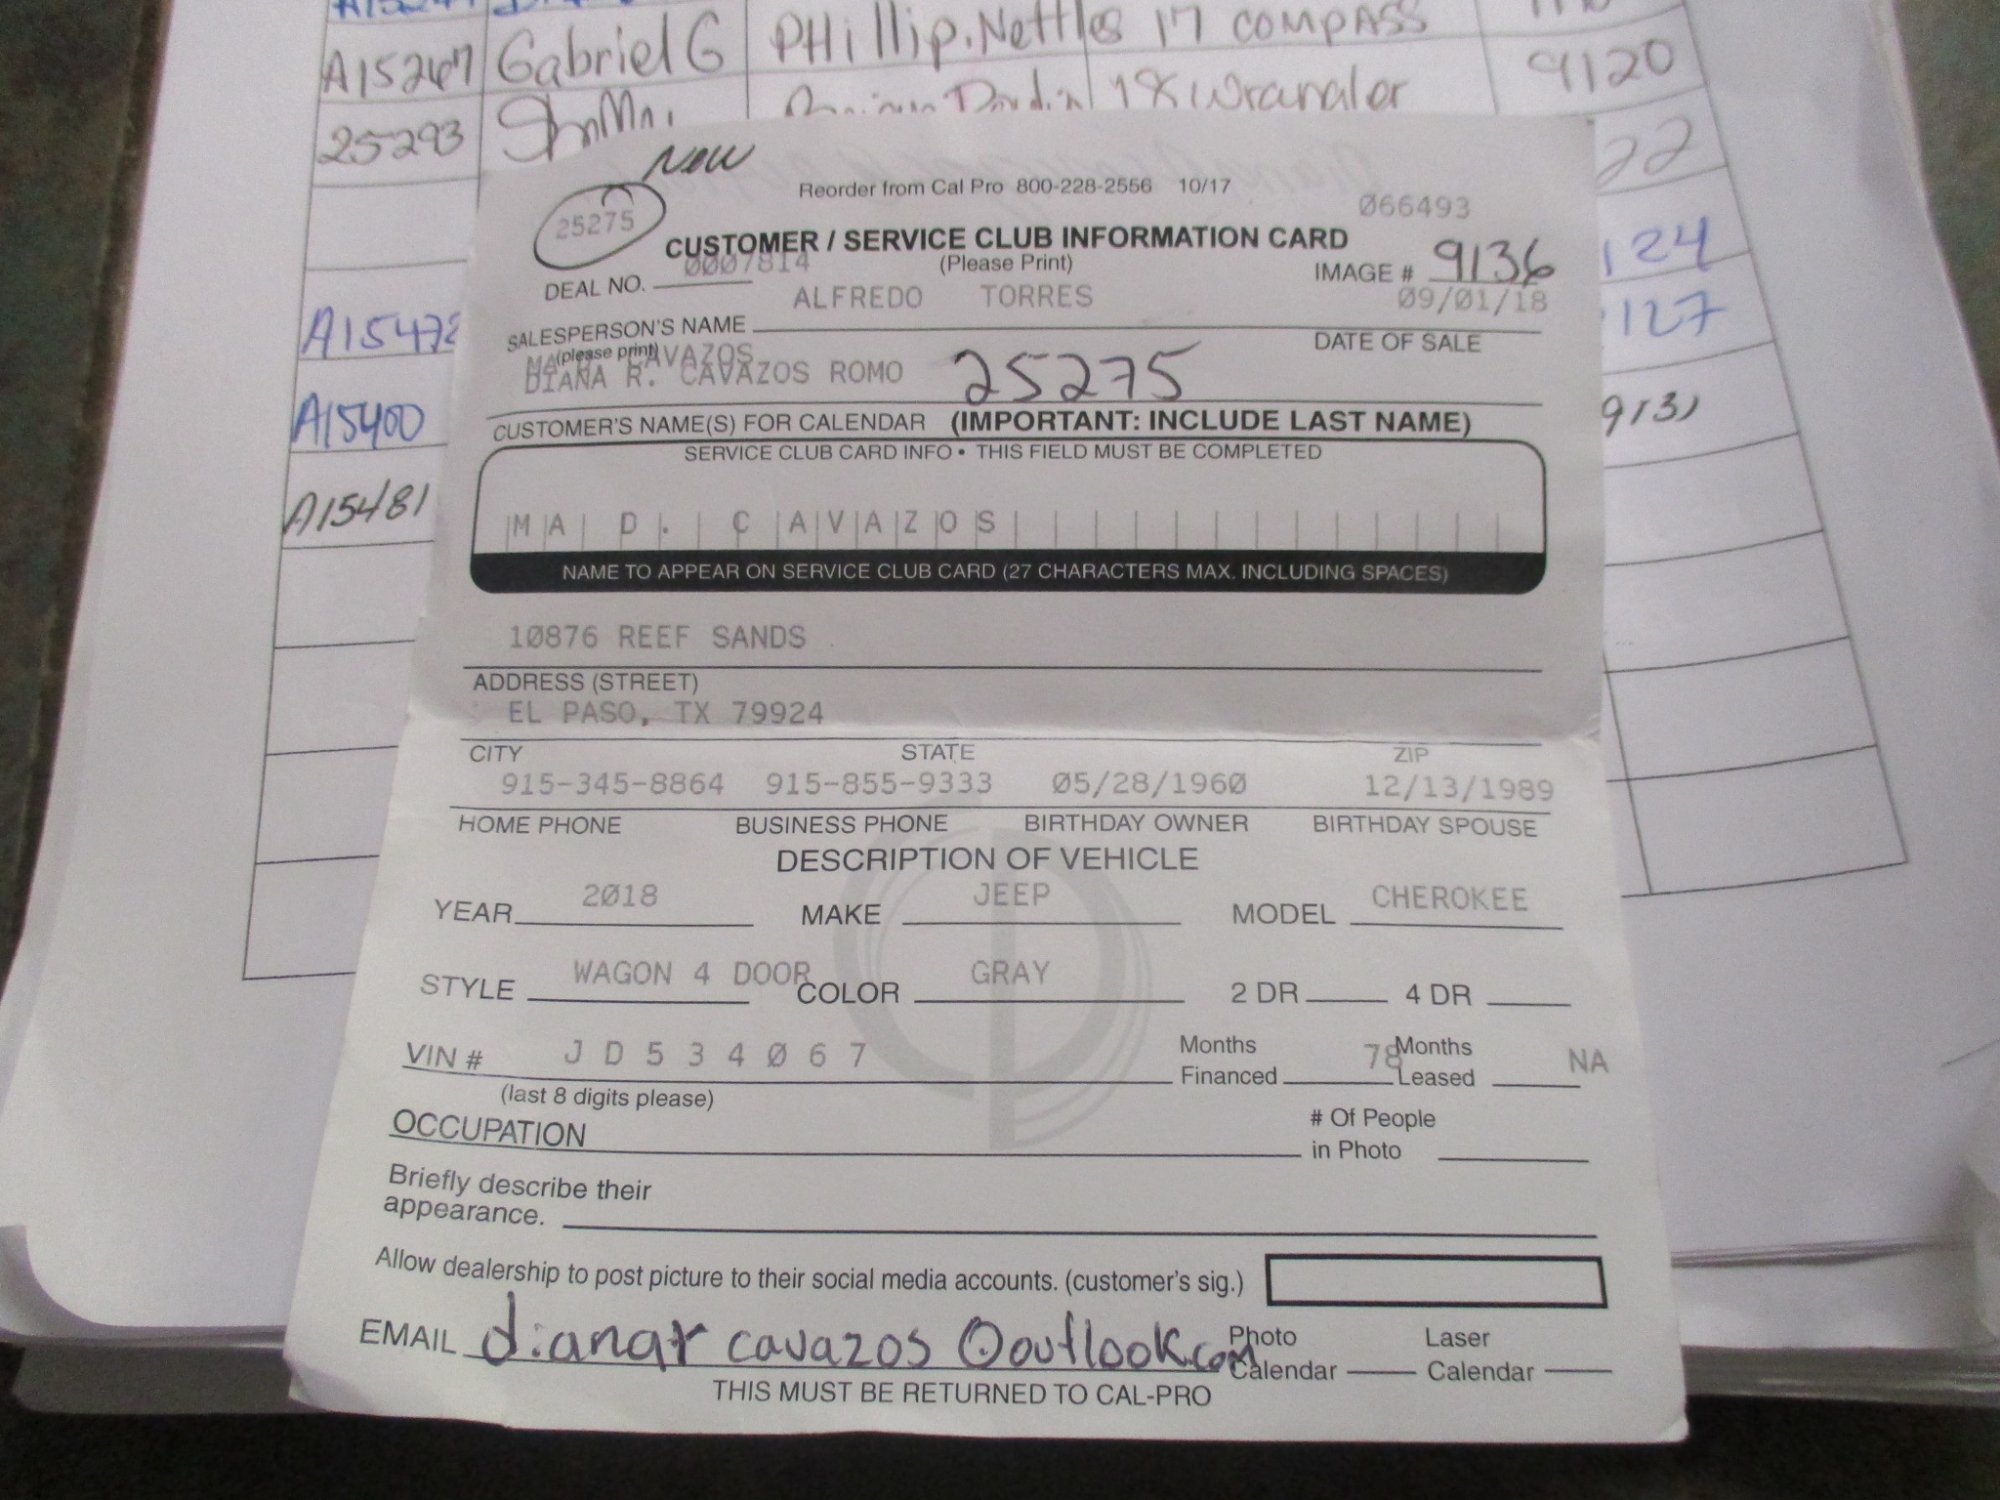 A15267 Gabriel G PHillip. Nettles 17 compass
25293 18 Wrangler 9120
22
124
A15472 127
A15400 9131
A15481
New
25275
Reorder from Cal Pro 800-228-2556 10/17
Ø66493
CUSTOMER / SERVICE CLUB INFORMATION CARD
(Please Print)
DEAL NO. 0007814
IMAGE # 9136
ALFREDO TORRES
Ø9/Ø1/18
SALESPERSON'S NAME
(please print)
DATE OF SALE
MA D. CAVAZOS
DIANA R. CAVAZOS ROMO 25275
CUSTOMER'S NAME(S) FOR CALENDAR (IMPORTANT: INCLUDE LAST NAME)
SERVICE CLUB CARD INFO • THIS FIELD MUST BE COMPLETED
MA D. CAVAZOS
NAME TO APPEAR ON SERVICE CLUB CARD (27 CHARACTERS MAX. INCLUDING SPACES)
1Ø876 REEF SANDS
ADDRESS (STREET)
EL PASO, TX 79924
CITY STATE ZIP
915-345-8864 915-855-9333 Ø5/28/196Ø 12/13/1989
HOME PHONE BUSINESS PHONE BIRTHDAY OWNER BIRTHDAY SPOUSE
DESCRIPTION OF VEHICLE
YEAR 2Ø18 MAKE JEEP MODEL CHEROKEE
STYLE WAGON 4 DOOR COLOR GRAY 2 DR 4 DR
VIN # J D 5 3 4 Ø 6 7 Months Financed 78 Months Leased NA
(last 8 digits please)
OCCUPATION # Of People in Photo
Briefly describe their
appearance.
Allow dealership to post picture to their social media accounts. (customer's sig.)
EMAIL dianarcavazos@outlook.com Photo Calendar Laser Calendar
THIS MUST BE RETURNED TO CAL-PRO